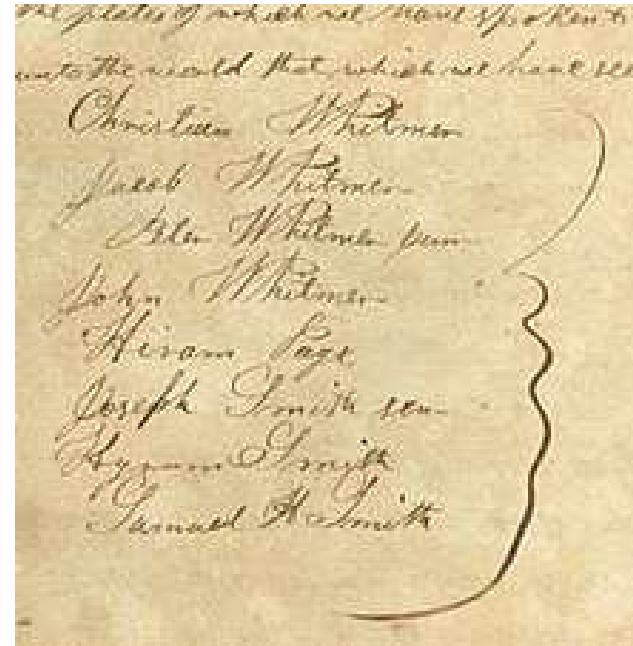 the plates of which we have spoken
unto the world that which we have see
Christian Whitmer
Jacob Whitmer
Peter Whitmer jun
John Whitmer
Hiram Page
Joseph Smith sen
Hyrum Smith
Samuel H Smith